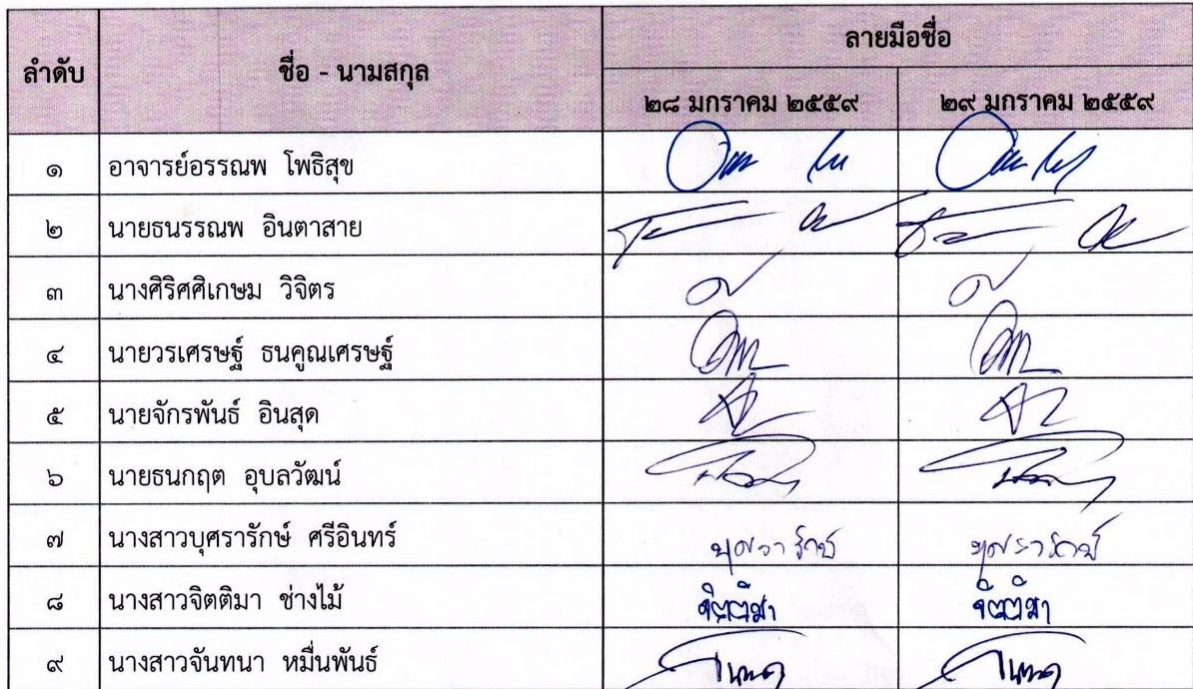 ลำดับ ชื่อ - นามสกุล ลายมือชื่อ
๒๘ มกราคม ๒๕๕๙ ๒๙ มกราคม ๒๕๕๙
๑ อาจารย์อรรณพ โพธิสุข
๒ นายธนรรณพ อินตาสาย
๓ นางศิริศศิเกษม วิจิตร
๔ นายวรเศรษฐ์ ธนคูณเศรษฐ์
๕ นายจักรพันธ์ อินสุด
๖ นายธนกฤต อุบลวัฒน์
๗ นางสาวบุศรารักษ์ ศรีอินทร์ บุศรารักษ์ บุศรารักษ์
๘ นางสาวจิตติมา ช่างไม้ จิตติมา จิตติมา
๙ นางสาวจันทนา หมื่นพันธ์